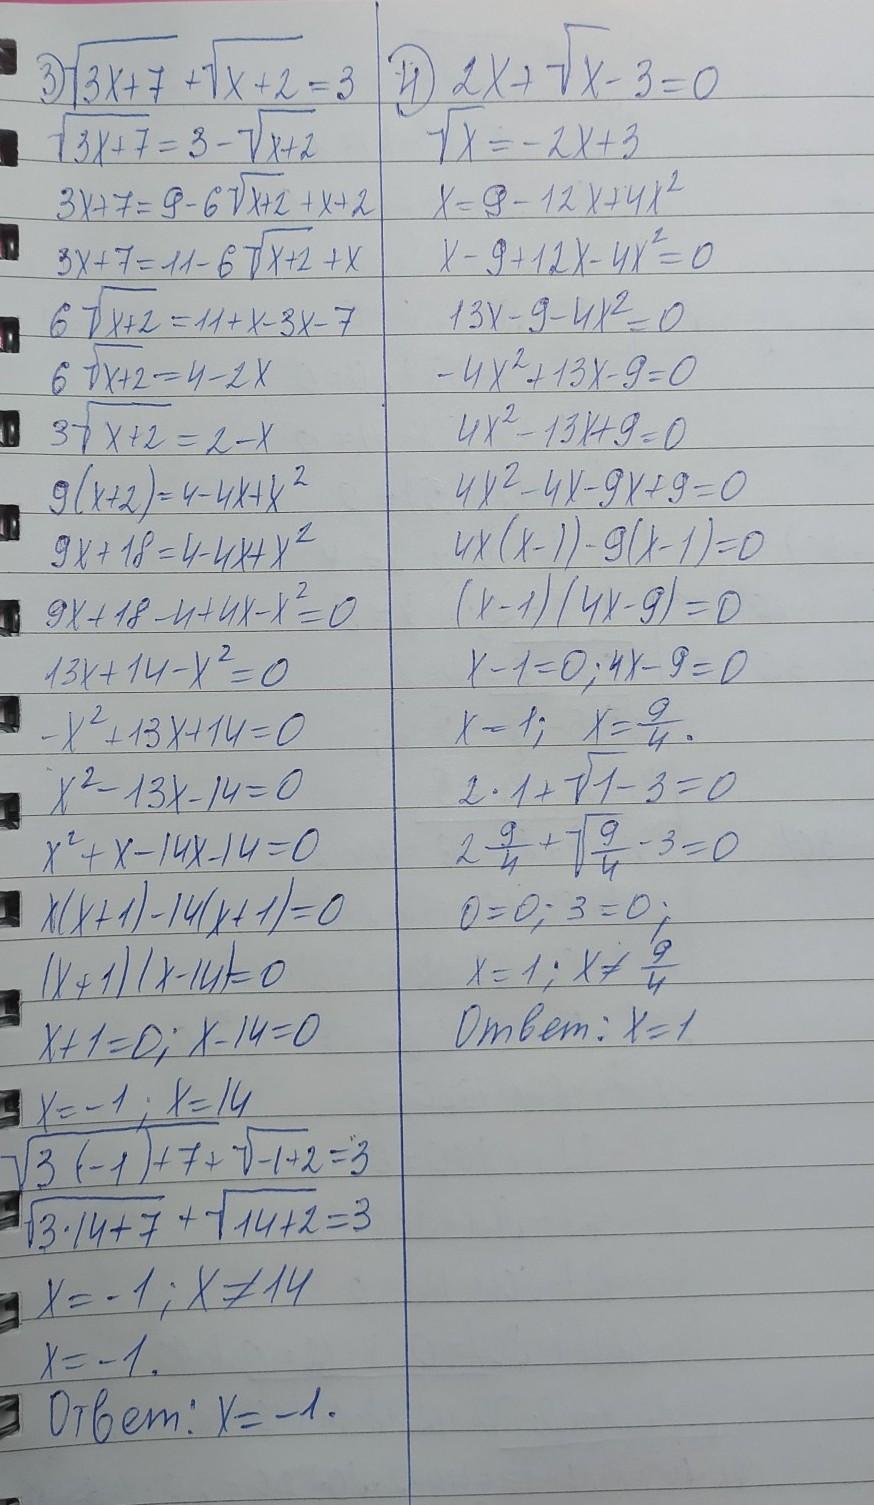 3) √3x+7 + √x+2 = 3
√3x+7 = 3 - √x+2
3x+7 = 9 - 6√x+2 + x+2
3x+7 = 11 - 6√x+2 + x
6√x+2 = 11+x-3x-7
6√x+2 = 4-2x
3√x+2 = 2-x
9(x+2) = 4-4x+x²
9x+18 = 4-4x+x²
9x+18-4+4x-x² = 0
13x+14-x² = 0
-x²+13x+14 = 0
x²-13x-14 = 0
x²+x-14x-14 = 0
x(x+1)-14(x+1) = 0
(x+1)(x-14) = 0
x+1=0; x-14=0
x=-1; x=14
√3(-1)+7 + √-1+2 = 3
√3·14+7 + √14+2 = 3
x=-1; x≠14
x=-1.
Ответ: x=-1.
4) 2x+√x-3=0
√x = -2x+3
x = 9-12x+4x²
x-9+12x-4x² = 0
13x-9-4x² = 0
-4x²+13x-9 = 0
4x²-13x+9 = 0
4x²-4x-9x+9 = 0
4x(x-1)-9(x-1) = 0
(x-1)(4x-9) = 0
x-1=0; 4x-9=0
x=1; x=9/4.
2·1+√1-3=0
2 9/4 + √9/4 - 3 = 0
0=0; 3=0;
x=1; x≠9/4
Ответ: x=1